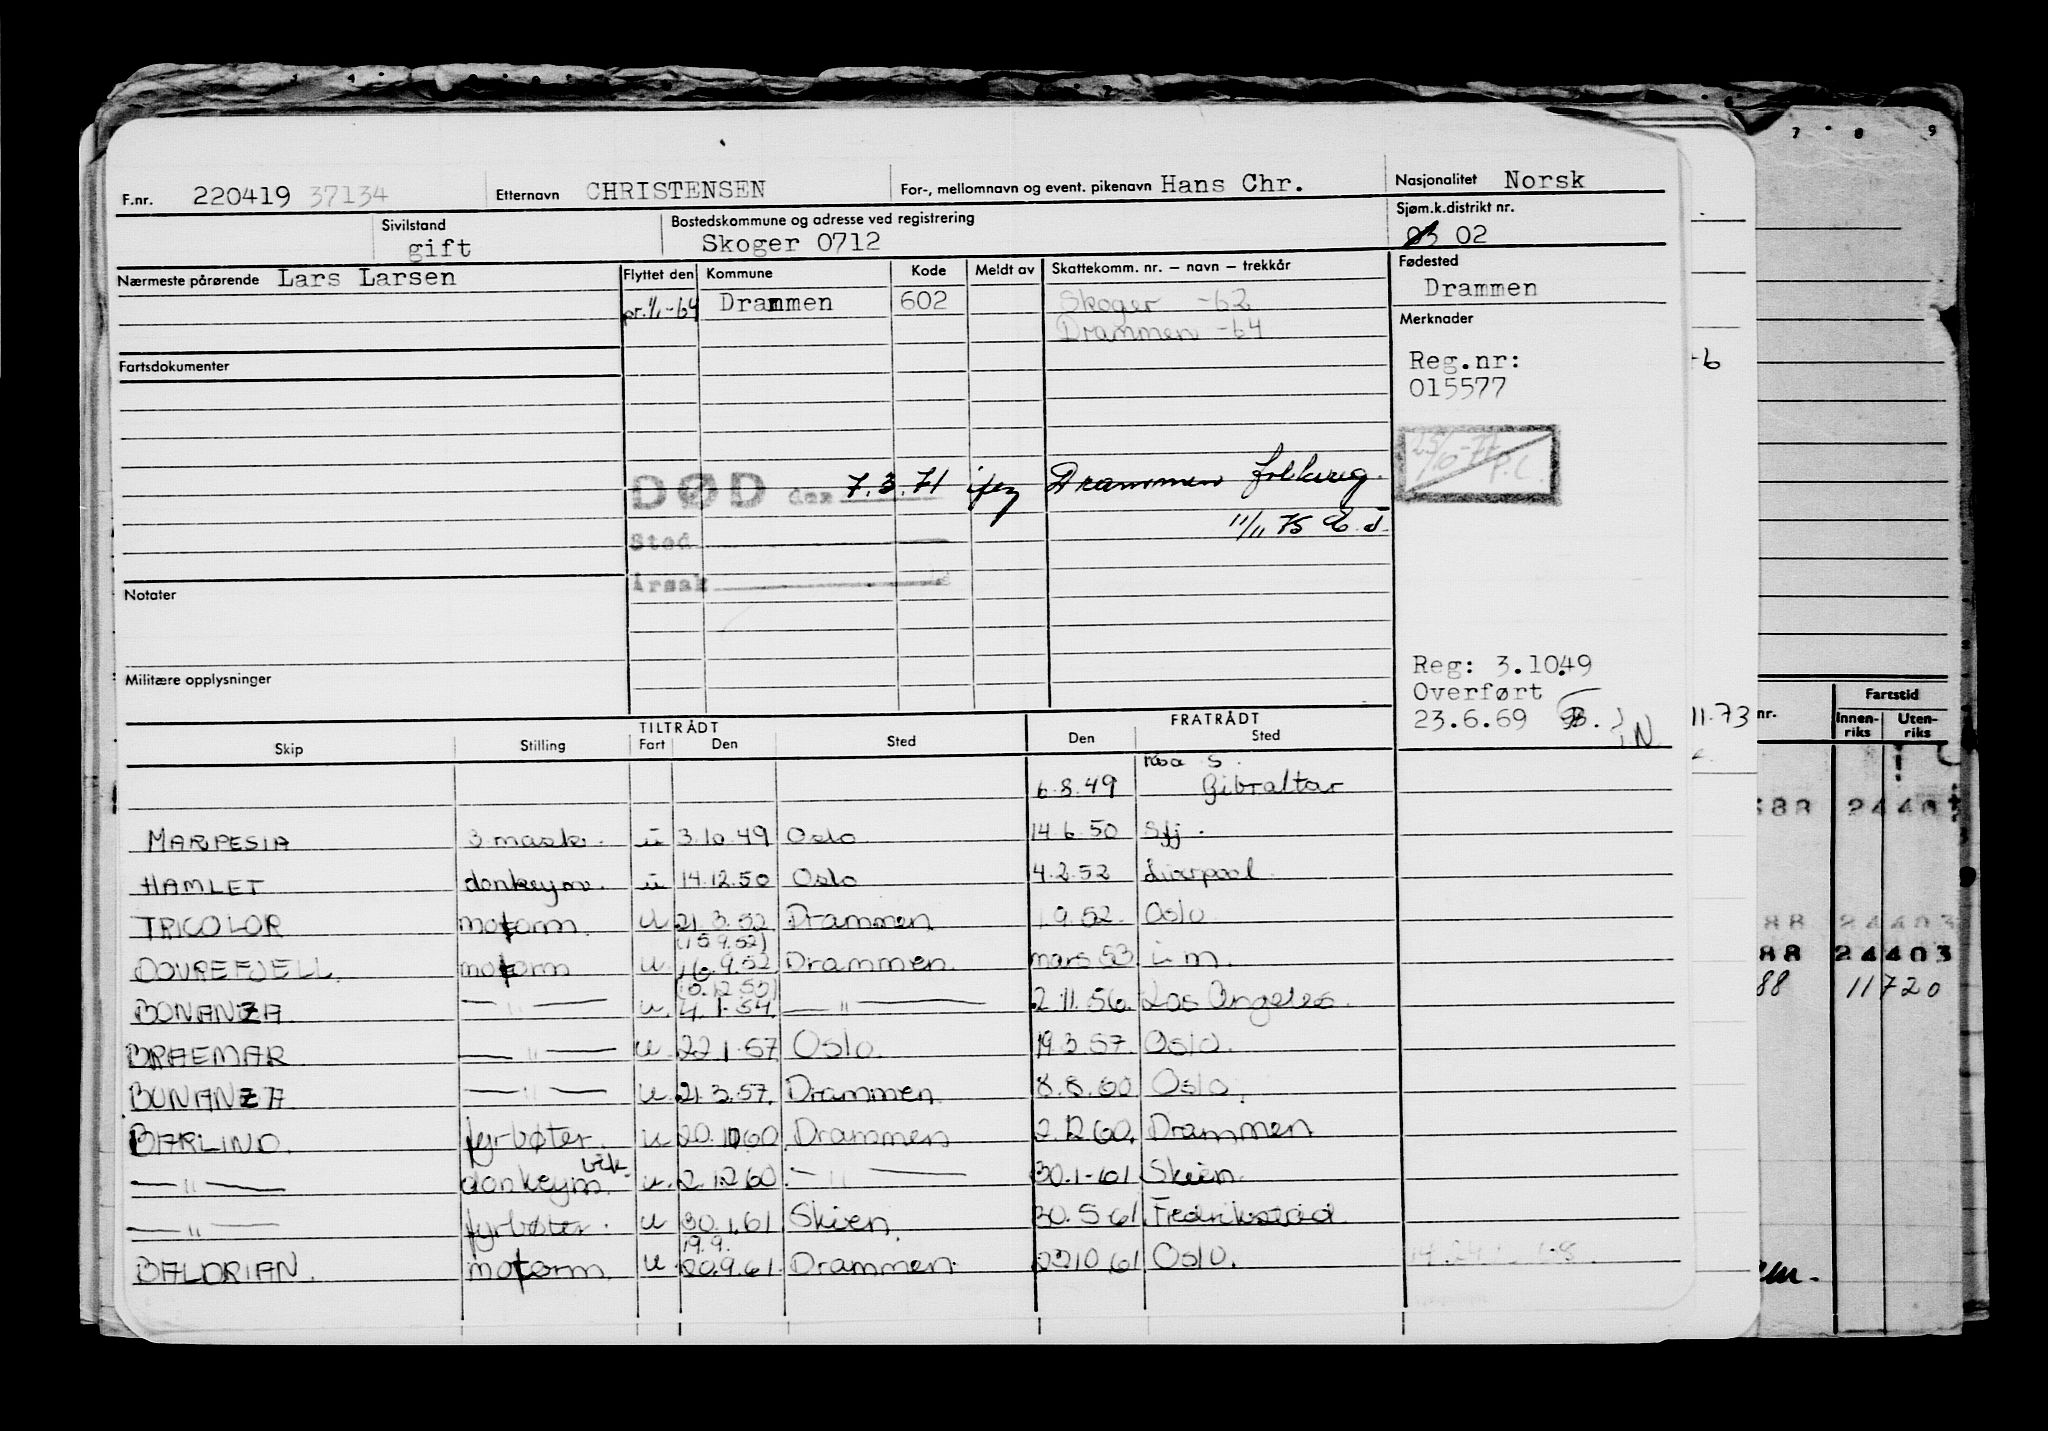 F.nr. 220419 37134 Etternavn CHRISTENSEN For-, mellomnavn og event. pikenavn Hans Chr. Nasjonalitet Norsk
Sivilstand gift Bostedskommune og adresse ved registrering Skoger 0712 Sjøm.k.distrikt nr. 03 02
Nærmeste pårørende Lars Larsen Flyttet den Kommune Kode Meldt av Skattekomm. nr. – navn – trekkår Fødested Drammen
pr. 1/1-64 Drammen 602 Skoger -62
Drammen -64
Merknader
Fartsdokumenter
Reg.nr:
015577
25/10-77 P.C.
DØD den 7.3.71 Drammen folkereg.
11/11 75
Sted
Årsak
Notater
Militære opplysninger
Reg: 3.10.49
Overført
23.6.69
TILTRÅDT FRATRÅDT
Skip Stilling Fart Den Sted Den Sted
6.8.49 Gibraltar
MARPESIA 3 mask. u 3.10.49 Oslo 14.6.50 Sfj.
HAMLET donkeym. u 14.12.50 Oslo 4.2.52 Liverpool
TRICOLOR motorm. u 21.3.52 Drammen 9.52 Oslo
(15.9.52)
DOVREFJELL motorm u. 16.9.52 Drammen mars 53 i. m.
BONANZA — " — u. 4.1.54 — " — 2.11.56. Los Angeles.
BRAEMAR — " — u. 22.1.57 Oslo. 19.3.57. Oslo.
BONANZA — " — u. 21.3.57. Drammen 8.8.60 Oslo.
BARLIND. fyrbøter. u 20.10.60. Drammen 2.12.60. Drammen
— " — donkeym. vik. u. 2.12.60. — " — 30.1-61 Skien.
— " — fyrbøter. u 30.1.61 Skien. 30.5.61 Fredrikstad
19.9.
BALDRIAN. motorm. u 20.9.61. Drammen. 23.10.61 Oslo.
7 8 9
-6
11.73
nr. Fartstid
Innen-riks Uten-riks
88 24403
88 24403
88 11720